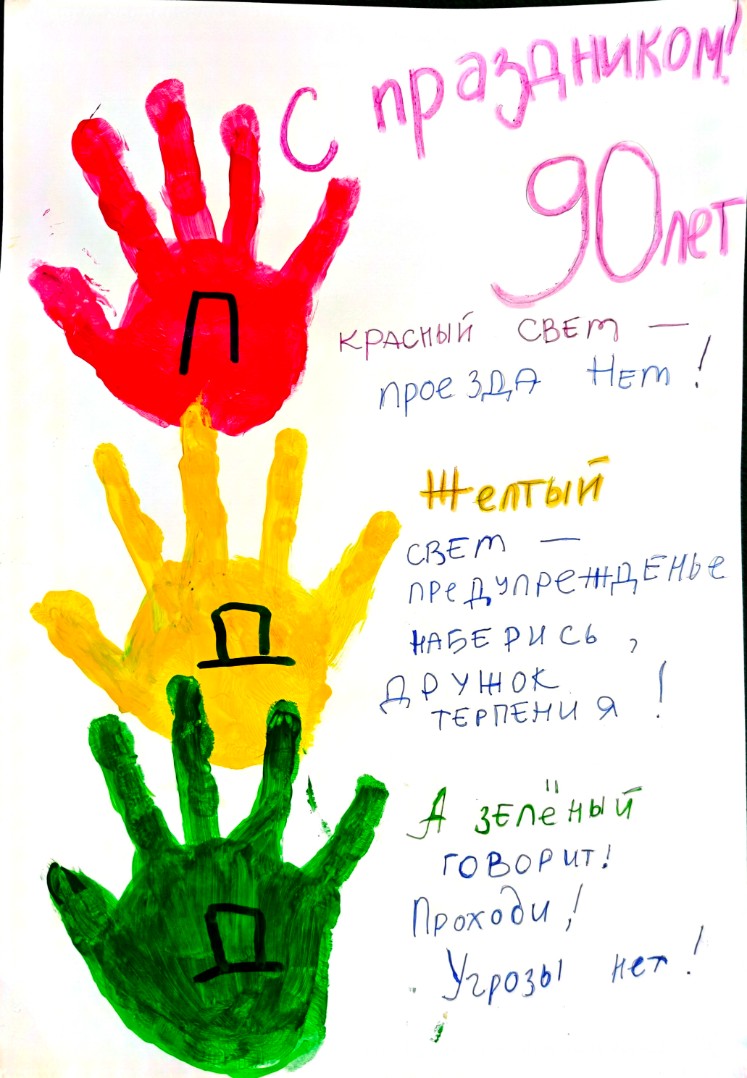 С праздником!
90 лет
П
Красный свет —
проезда нет!
Д
Желтый
свет —
предупрежденье
наберись,
дружок
терпения!
Д
А зелёный
говорит!
Проходи!
Угрозы нет!